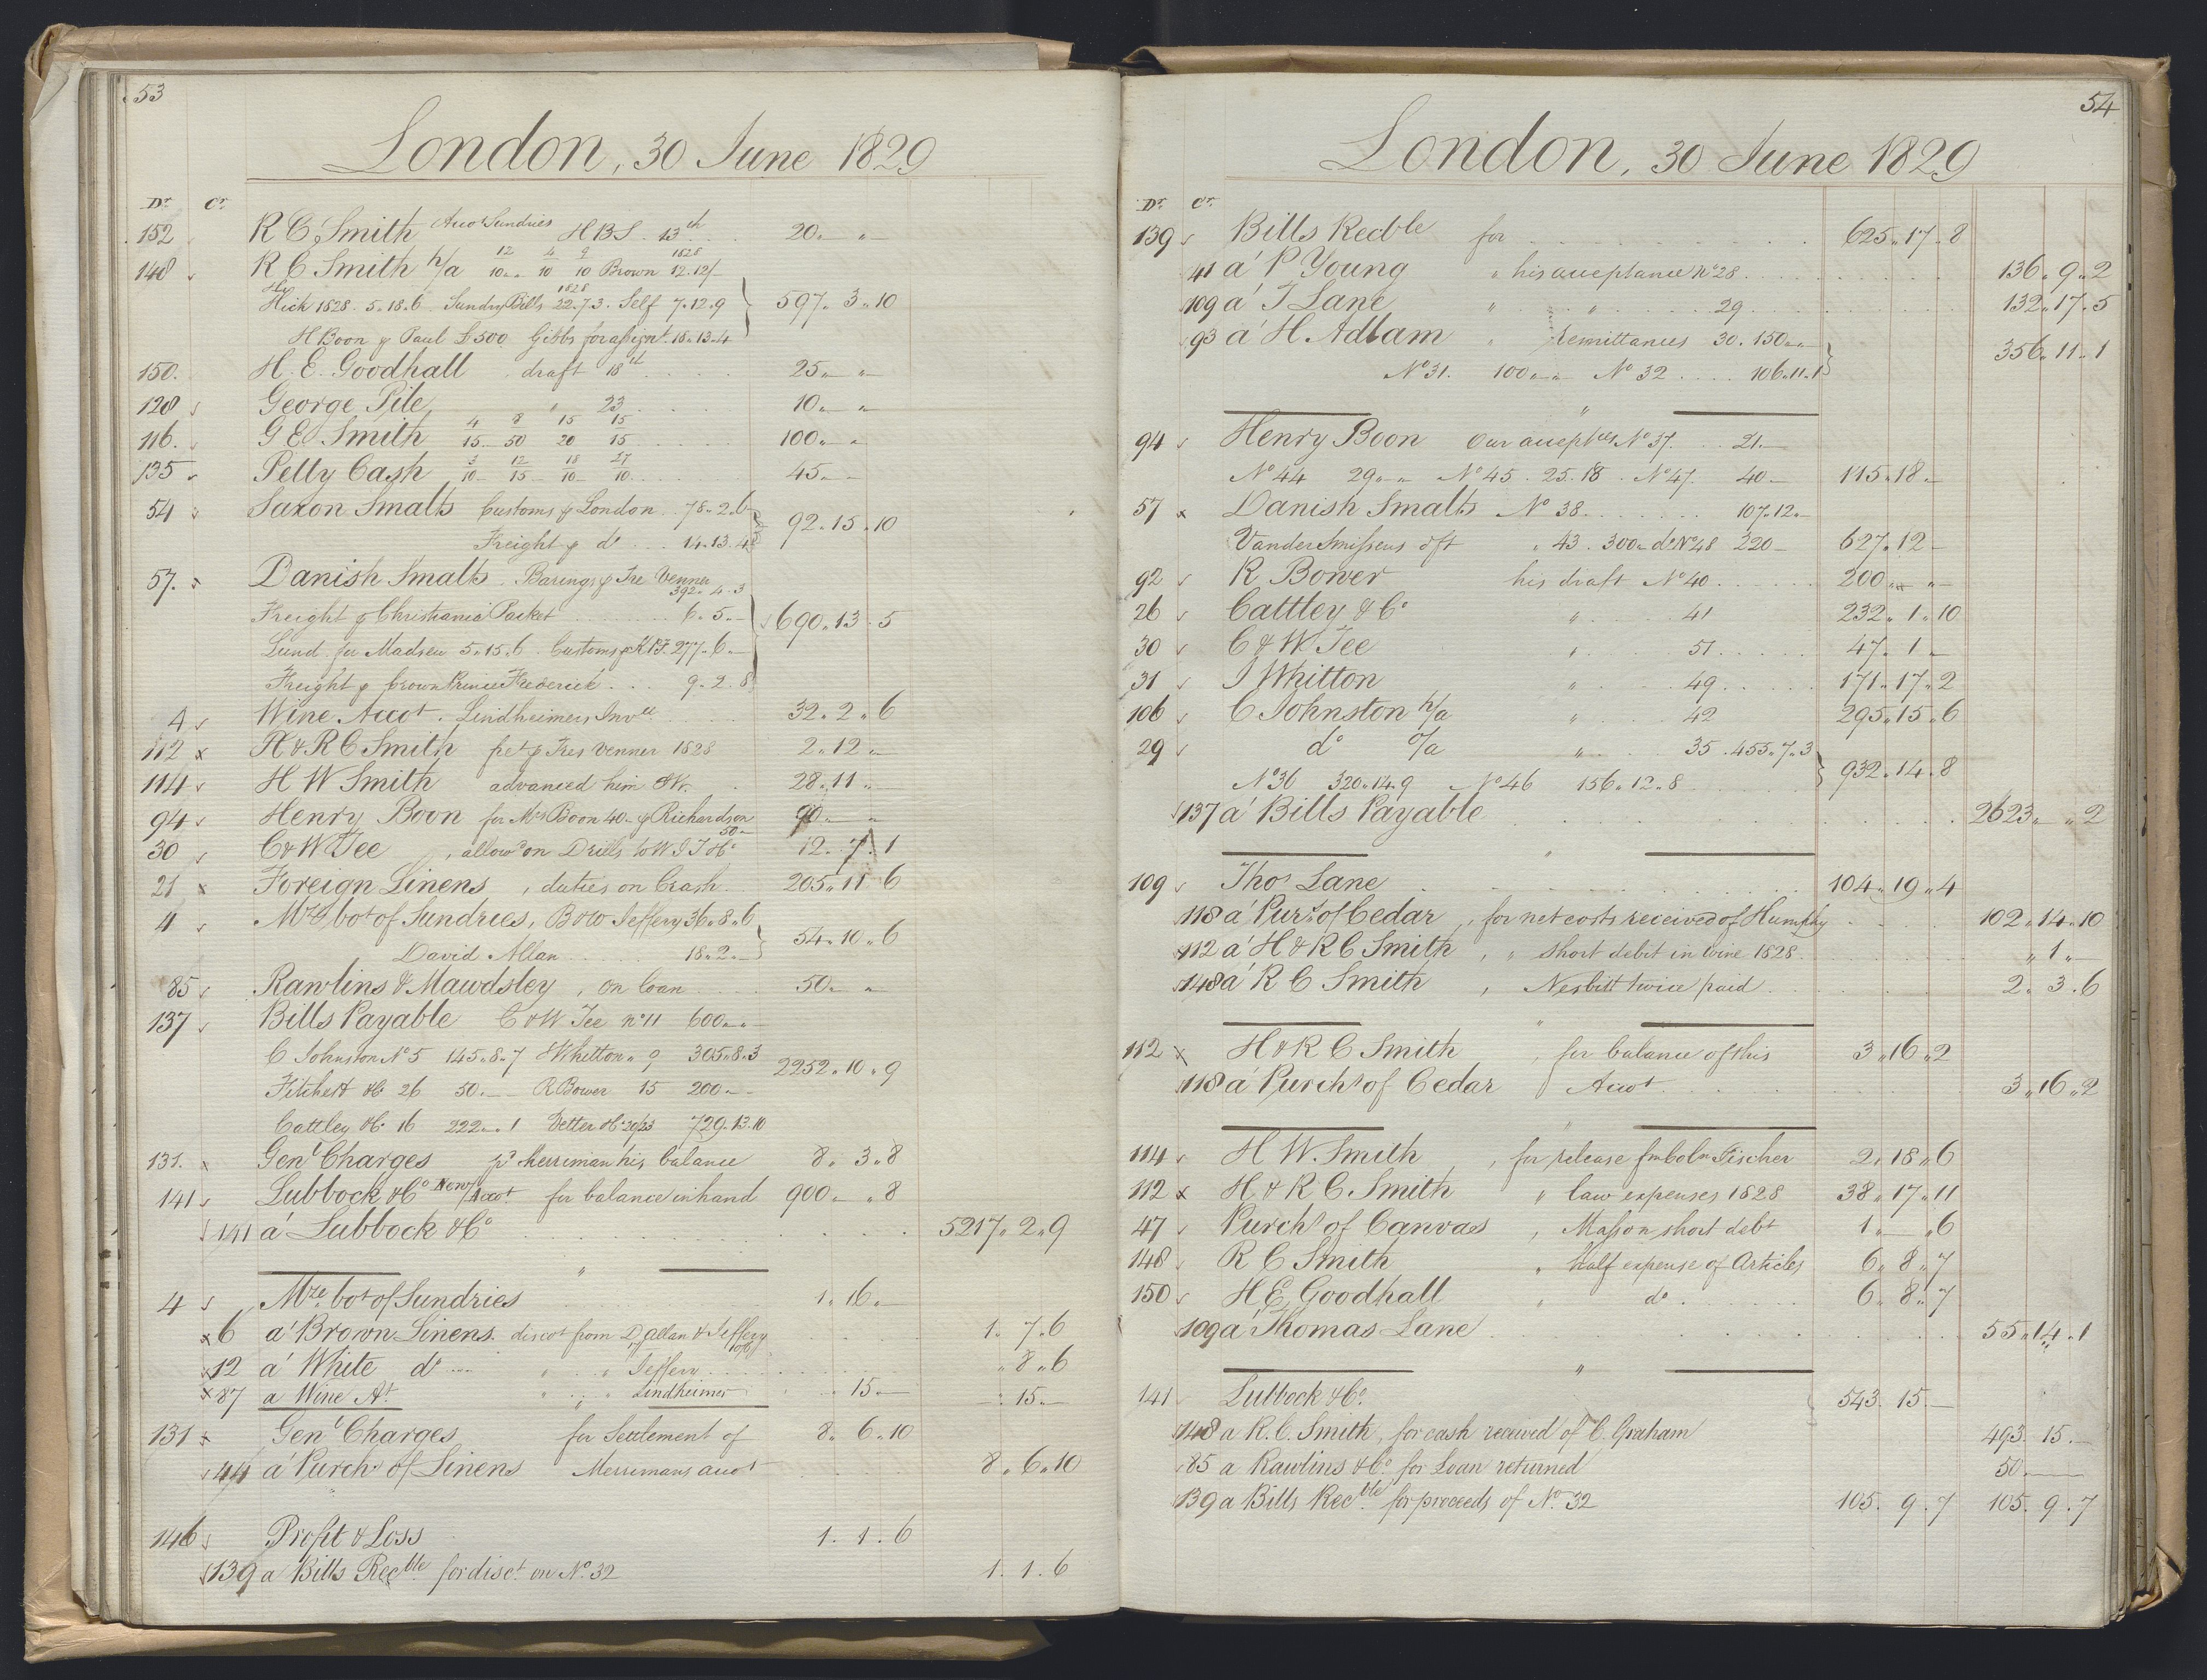 53
London, 30 June 1829
Dr. Cr.
152 R C Smith Acco Sundries H B S. 13th 20 " "
148 R C Smith n/a 12/10 " 4/10 9/10 Brown 1828 12.12/-
Hick 1828. 5.18.6 Sundry Bills 1828 22.7.3. Self 7.12.9 597 " 3 " 10
H Boon p Paul £500 Gibbs for assignt. 18.13.4
150. H. E. Goodhall draft 18th 25 " "
128 George Pile " 23 10 " "
116. G E Smith 4/15 8/50 15/20 15/15 100 " "
135 Petty Cash 3/10 12/15 18/10 27/10 45 " "
54 Saxon Smalts Customs p London 78 " 2 " 6 92 " 15 " 10
Freight p do 14.13.4
57. Danish Smalts. Barings p Tre Venner 392 " 4 " 3
Freight p Christiania Packet 6 " 5 " - 690 " 13 " 5
Lund for Madsen 5.15.6. Customs p K P F. 277 " 6 "
Freight p Crown Prince Frederick 9 " 2 " 8
4 Wine Accot. Lindheimers Invce 32 " 2 " 6
112 x H & R C Smith fret p Tres Venner 1828 2 " 12 "
114 H W Smith advanced him 28 " 11 "
94 Henry Boon for Mrs Boon 40 " p Richardson 50 " 90 " "
30 C & W Tee , allowd on Drills to W I T & Co 12 " 7 " 1
21 x Foreign Linens , duties on Crash 205 " 11 " 6
4 Mze bot of Sundries, B & W Jeffery 36 " 8 " 6 54 " 10 " 6
David Allan 18 " 2 "
85 Rawlins & Mawdsley , on loan 50 " "
137 Bills Payable C & W Tee No 11 600 " "
C Johnston No 5 145 " 8 " 7 J Whitton " 9 305 " 8 " 3 2252 " 10 " 9
Fitchett &C 26 50. — R Bower 15 200 —
Cattley & Co 16 222 " " 1 Vetter & Co 20/23 729.13.10
131. x Genl Charges pd Merriman his balance 8 " 3 " 8
141 Lubbock & Co New Accot for balance in hand 900 " " 8
141 a' Lubbock & Co 5217 " 2 " 9
"
4 Mze bot of Sundries 1 " 16 "
x 6 a' Brown Linens. discot from D Allan & Jeffery 1 " 7 " 6
12 a' White do " " Jeffery " 8 " 6
x 87 a Wine At. " " Lindheimer 15 — 15 —
131 x Genl Charges for Settlement of 8 " 6 " 10
44 a' Purchs of Linens Merrimans accot 8 " 6 " 10
146 Profit & Loss 1. 1. 6
139 a Bills Recble for disct. on No. 32 1. 1. 6
54
London, 30 June 1829
Dr. Cr.
139 Bills Recble for 625 " 17 " 8
41 a' P Young " his acceptance No 28 136 " 9 " 2
109 a' T Lane " " 29 132 " 17 " 5
93 a' H Adlam " Remittances 30. 150 " " 356 " 11 " 1
No 31. 100 " " No 32 106 " 11 " 1
"
94 Henry Boon Our acceptces No 37. 21. —
No 44 29 " " No 45. 25.18. No 47. 40 — 115 " 18 "
57 x Danish Smalts No 38 107 " 12 "
Vander Smissens dft " 43. 300 " do No 48 220 — 627 " 12 —
92 R Bower his draft No 40 200 " "
26 Cattley & Co " 41 232 " 1 " 10
30 C & W Tee " 51 47 " 1 "
31 J Whitton " 49 171 " 17 " 2
106 C Johnston n/a " 42 295 " 15 " 6
29 do o/a " 35. 455 " 7 " 3
No 36 320 " 14 " 9 No 46 156 " 12 " 8 932 " 14 " 8
137 a' Bills Payable 2623 " " 2
"
109 Thos Lane 104 " 19 " 4
118 a' Purs. of Cedar , for net costs received of Humphy 102 " 14 " 10
112 a' H & R C Smith , " short debit in wine 1828 " 1 "
148 a' R C Smith , Nesbitt twice paid 2 " 3 " 6
"
112 x H & R C Smith , for balance of this 3 " 16 " 2
118 a' Purchs of Cedar Accot 3 " 16 " 2
"
114 H W. Smith , for release fm Coln Fischer 2 " 18 " 6
112 x H & R C Smith " law expenses 1828 38 " 17 " 11
47 Purchs of Canvas , Masson short debt 1 " — " 6
148 R C Smith " Half expense of Articles 6 " 8 " 7
150 H E Goodhall " do 6 " 8 " 7
109 a' Thomas Lane 55 " 14 " 1
"
141 Lubbock & Co. 543. 15. —
148 a R. C. Smith, for cash received of C. Graham 493. 15. —
85 a Rawlins & Co. for Loan returned 50 —
139 a Bills Recble for proceeds of No. 32 105. 9. 7 105. 9. 7